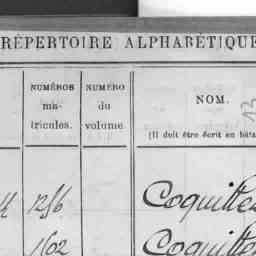 RÉPERTOIRE ALPHABÉTIQUE
NUMÉROS
ma-
tricules.
NUMÉRO
du
volume
NOM.
13
(Il doit être écrit en bâta
1256
Coquille
1602
Coquille